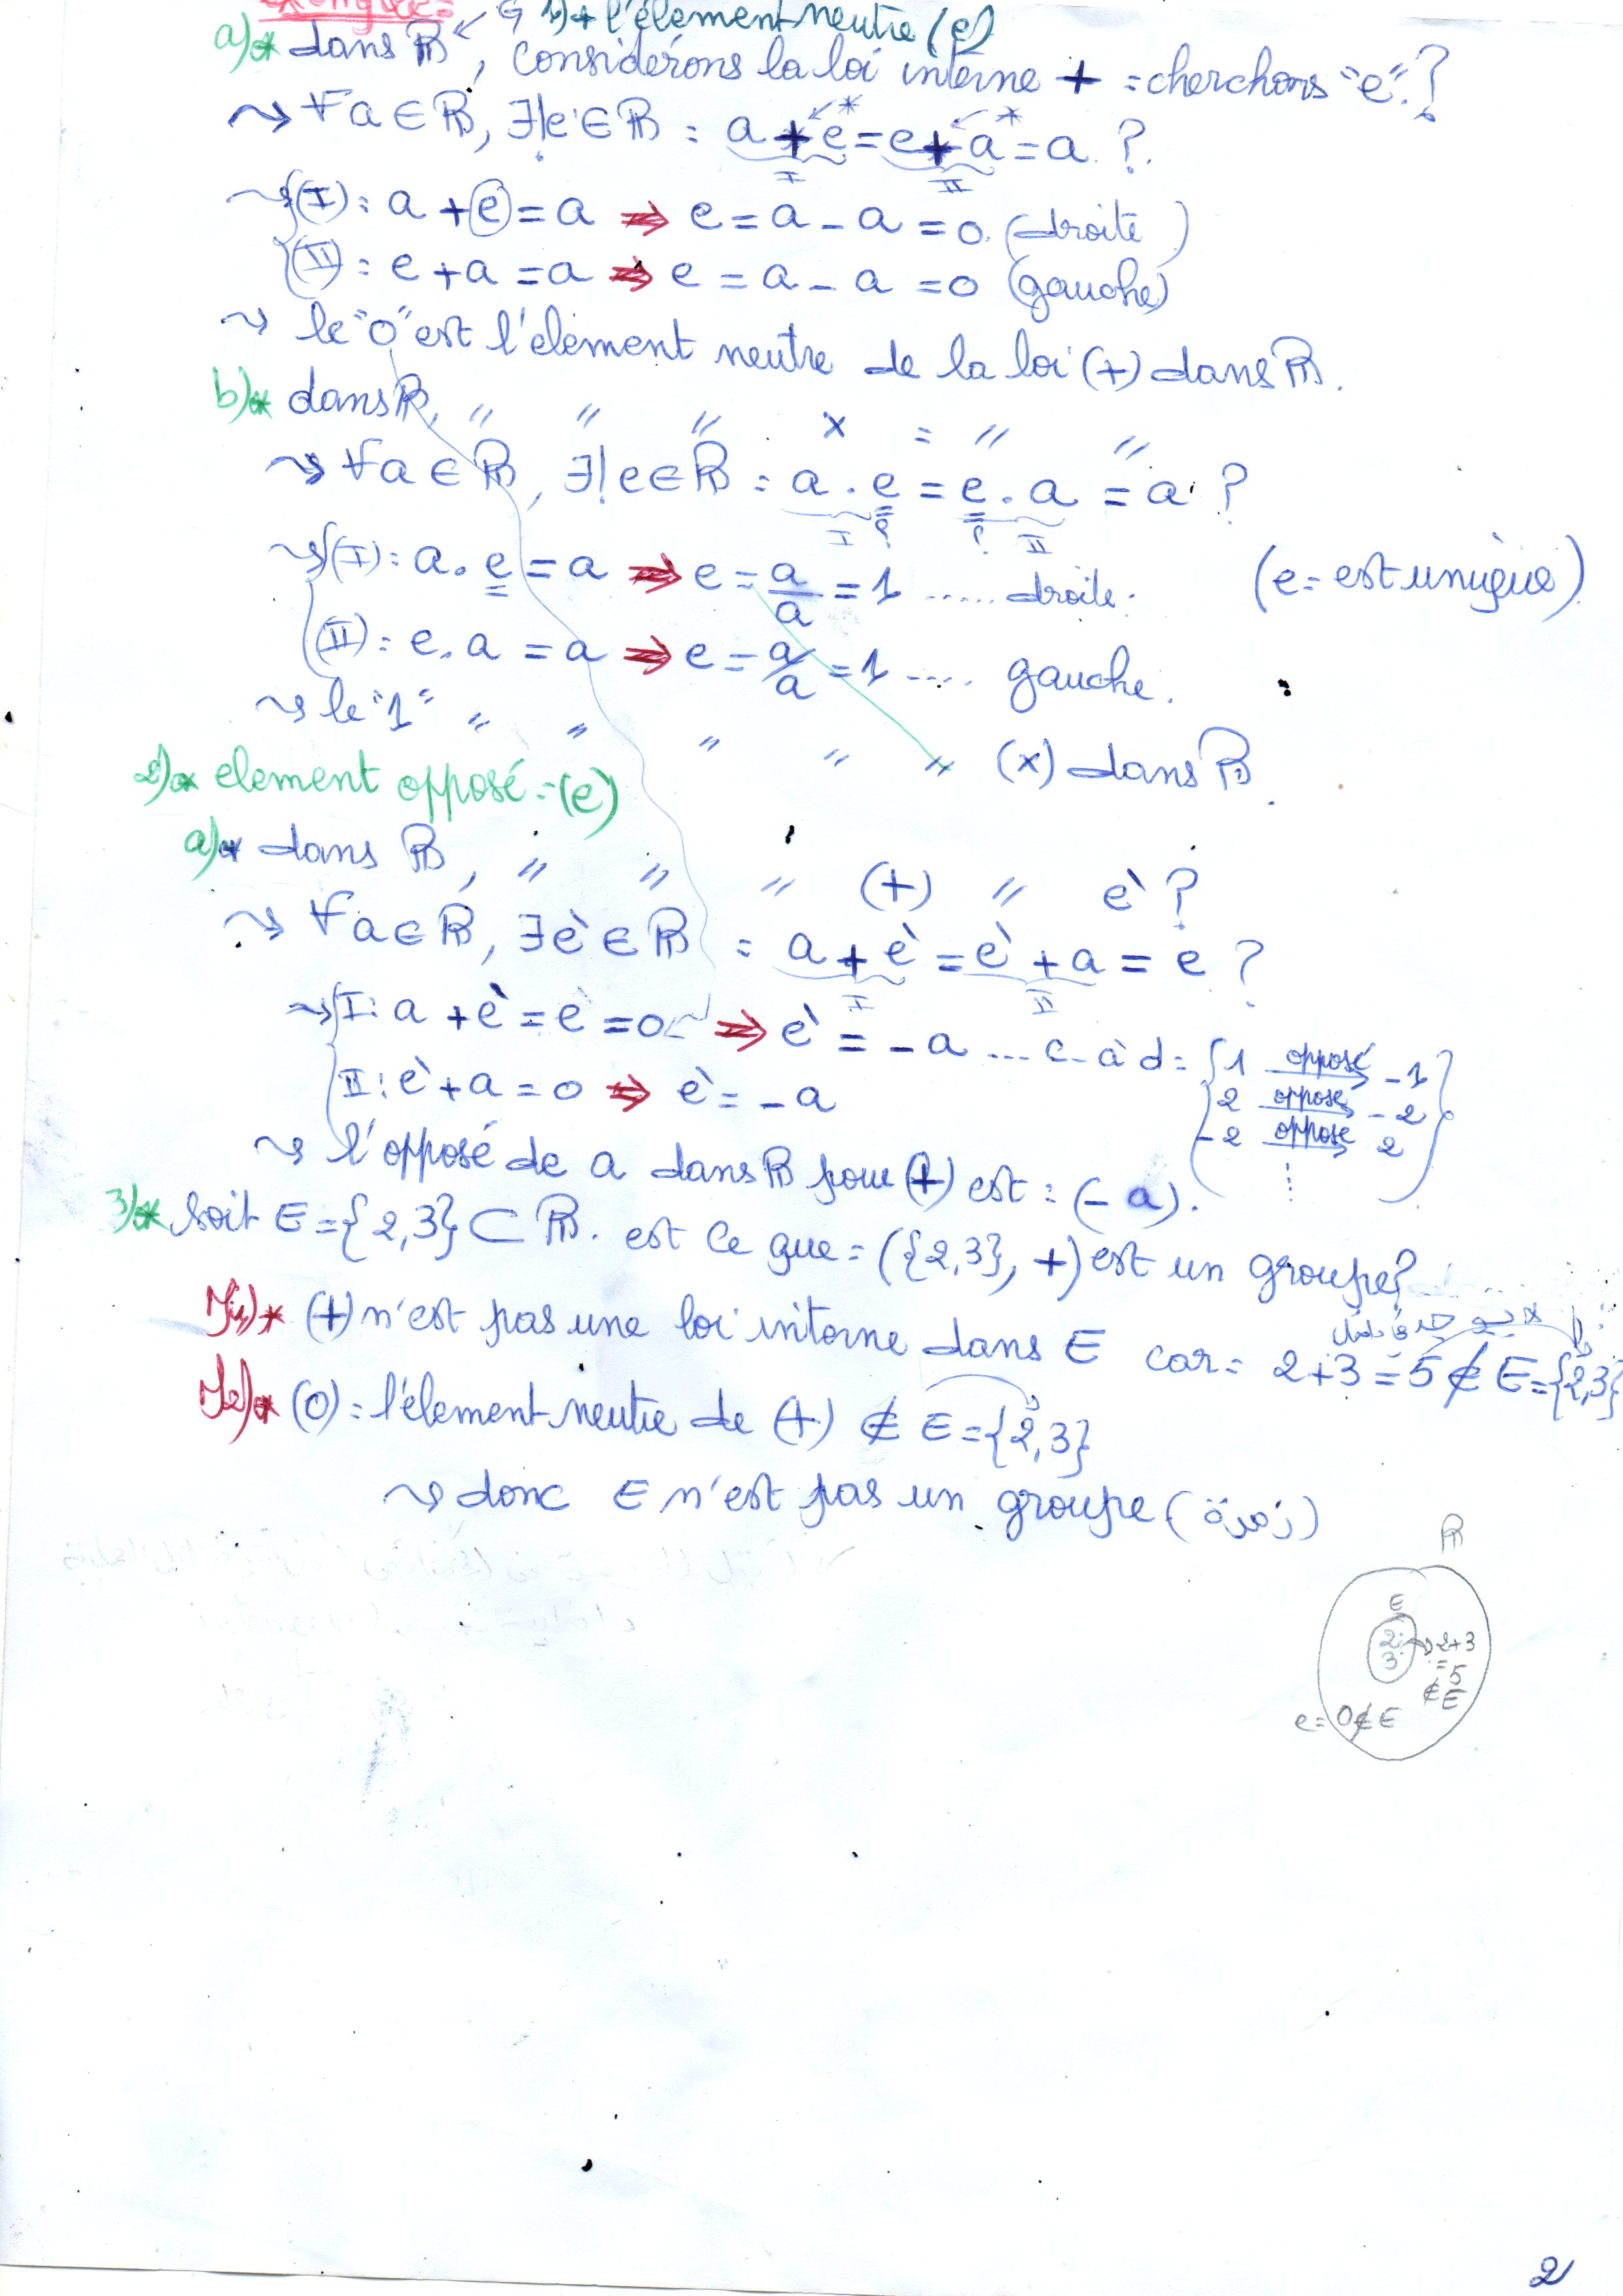 exemple =
G 1)* l'élement neutre (e)
a)* dans ℝ, considérons la loi interne + = cherchons "e"?
⇝ ∀a∈ℝ, ∃!e∈ℝ = a + e = e + a = a ?
* *
I II
⇝ (I): a + e = a ⇒ e = a - a = 0 (droite)
(II): e + a = a ⇒ e = a - a = 0 (gauche)
⇝ le "0" est l'élement neutre de la loi (+) dans ℝ.
b)* dans ℝ, " " " x = " "
⇝ ∀a∈ℝ, ∃!e∈ℝ = a . e = e . a = a ?
I ? ? II
⇝ (I): a . e = a ⇒ e = a/a = 1 ..... droite. (e = est unique)
(II): e . a = a ⇒ e = a/a = 1 .... gauche.
⇝ le "1" " " " " " (x) dans ℝ.
2)* element opposé = (e)
a)* dans ℝ, " " " (+) " è ?
⇝ ∀a∈ℝ, ∃è∈ℝ = a + è = è + a = e ?
I II
⇝ I: a + è = e = 0 ⇒ è = - a ... c-à d = { 1 opposé → -1
2 opposé → -2
-2 opposé → 2
⋮ }
II: è + a = 0 ⇒ è = - a
⇝ l'opposé de a dans ℝ pour (+) est = (- a).
3)* soit E = {2,3} ⊂ ℝ. est ce que = ({2,3}, +) est un groupe?
* (+) n'est pas une loi interne dans E car = 2+3 = 5 ∉ E = {2,3}
لا يوجد في داخل
* (0) = l'élement neutre de (+) ∉ E = {2,3}
⇝ donc E n'est pas un groupe (زمرة)
ℝ
E
2. → 2+3
3. = 5
∉ E
e = 0 ∉ E
2